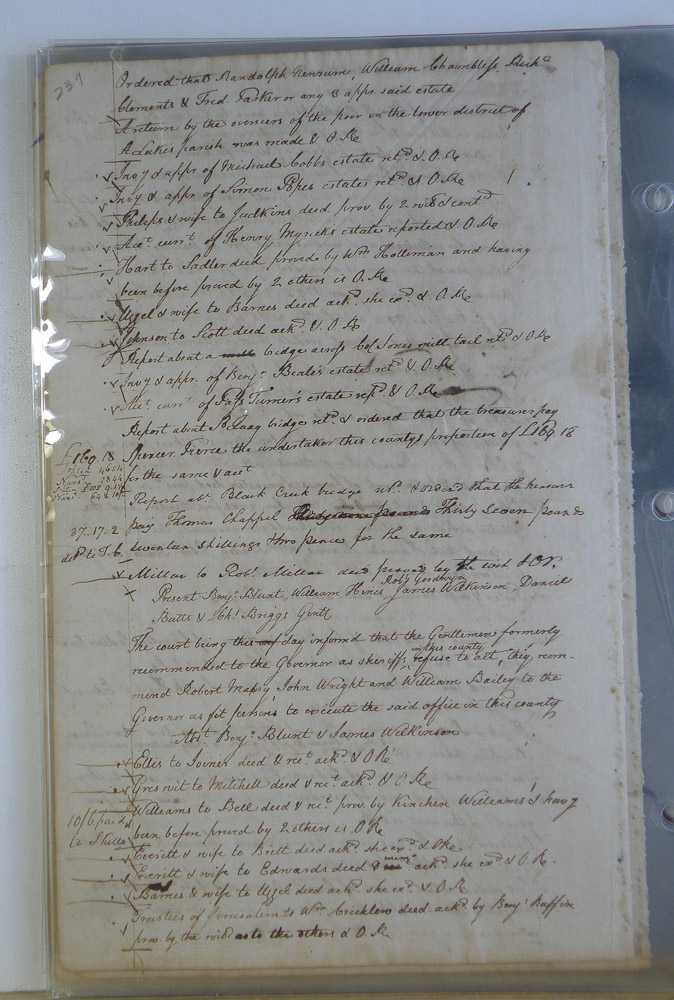 239
Ordered that Randolph Newsum, William Chambless, Rich^d
Clements & Fred Parker or any 3 appr said estate
A return by the overseers of the poor in the lower district of
St Lukes parish was made & O.R.
Inv^y & appr of Michael Cobbs estate ret^d & O.R.
Inv^y & appr. of Simon Popes estate ret^d & O.R.
Philips & wife to Judkins deed prov. by 2 wits & cont^d
Acc^t. curr^t. of Henry Myricks estate reported & O.R.
Hart to Sadler deed proved by W^m Holleman and having
been before proved by 2 others is O.R.
Uzzel & wife to Barnes deed ack^d. she ex^d. & O.R.
Johnson to Scott deed ack^d. & O.R.
Report about a mill bridge across Col Jones mill tail ret^d & O.R.
Inv^y & appr. of Benj^a. Beale's estate ret^d & O.R.
Acc^t. curr^t of Ja^s Turner's estate ret^d & O.R.
Report about bridge ret^d. & ordered that the treasurer pay
£169.18 Spencer Pierce the undertaker this county's proportion of £169.18
for the same & acct
Report ab^t. Black Creek bridge ret^d. & ordered that the treasurer
37.17.2 pay Thomas Chappel Thirty seven pounds
seventeen shillings two pence for the same
Millar to Rob^t. Millar deed proved by the wit & Or.
Present Benj^a. Blunt, William Hines, Rob^t Goodwyn James Wilkinson, Daniel
Butts & Ch^s. Briggs Gent^l
The court being this day informed that the Gentlemen formerly
recommended to the Governor as sheriffs in this county, refuse to act, they recom-
mend Robert Mabry, John Wright and William Bailey to the
Governor as fit persons to execute the said office in this county
Abs^t. Benj^a. Blunt & James Wilkinson
Ellis to Joiner deed & rec^t ack^d. & O R
to Mitchell deed & rec^t. ack^d. & O.R.
Williams to Bell deed & rec^t prov. by Kinchen Williams & having
been before proved by 2 others is O R
Everitt & wife to Britt deed ack^d. she ex^d. & O R
Everitt & wife to Edwards deed & mem^o ack^d. she ex^d. & O.R.
Barnes & wife to Uzzel deed ack^d. she ex^d & O.R
Trustees of Jerusalem to W^m Crichlow deed ack^d. by Benj^a Ruffin
prov. by the wits as to the others & O R.